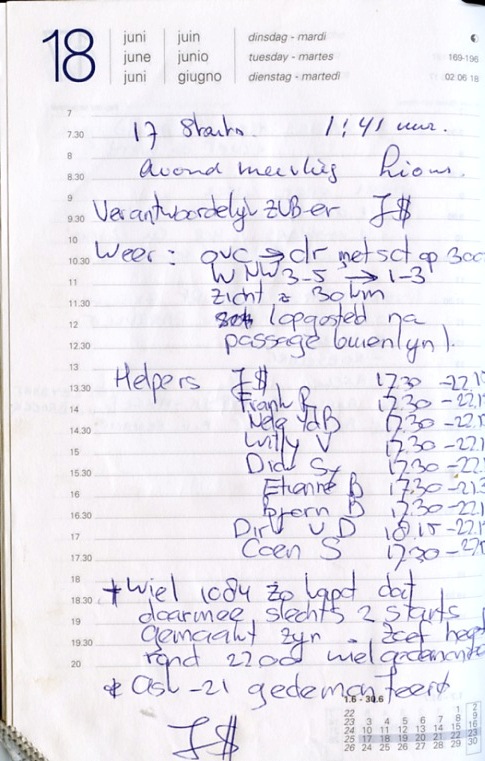 18
juni juin dinsdag - mardi
june junio tuesday - martes 169-196
juni giugno dienstag - martedì 02 06 18
7
7.30 17 Starts. 1:41 uur.
8
8.30 avond meevlieg
9
9.30 Verantwoordelijk ZUB-er J$
10
10.30 Weer: ovc → clr met sct op 300
11 WNW 3-5 → 1-3
11.30 zicht ± 30 km
12 (opgosted na
12.30 passage buienlyn).
13
13.30 Helpers J$ 17.30 -22.1
14 Frank R 17.30 -22.1
14.30 Nelg VdB 17.30 -22.1
15 Willy V 17.30 -22.1
15.30 Dick S 17.30 -22.1
16 Etienne B 17.30 -21.3
16.30 Bjern D 17.30 -22.1
17 Dirk v D 18.15 -22.1
17.30 Coen S 17.30 -22
18
18.30 + Wiel 1084 zo lapd dat
19 daarmee slechts 2 starts
19.30 gemaakt zyn. heeft
20 rond 2200 wiel gedemonte
* ASL -21 gedemonteerd
1.6 - 30.6
22 1 2
23 3 4 5 6 7 8 9
24 10 11 12 13 14 15 16
25 17 18 19 20 21 22 23
26 24 25 26 27 28 29 30
J$